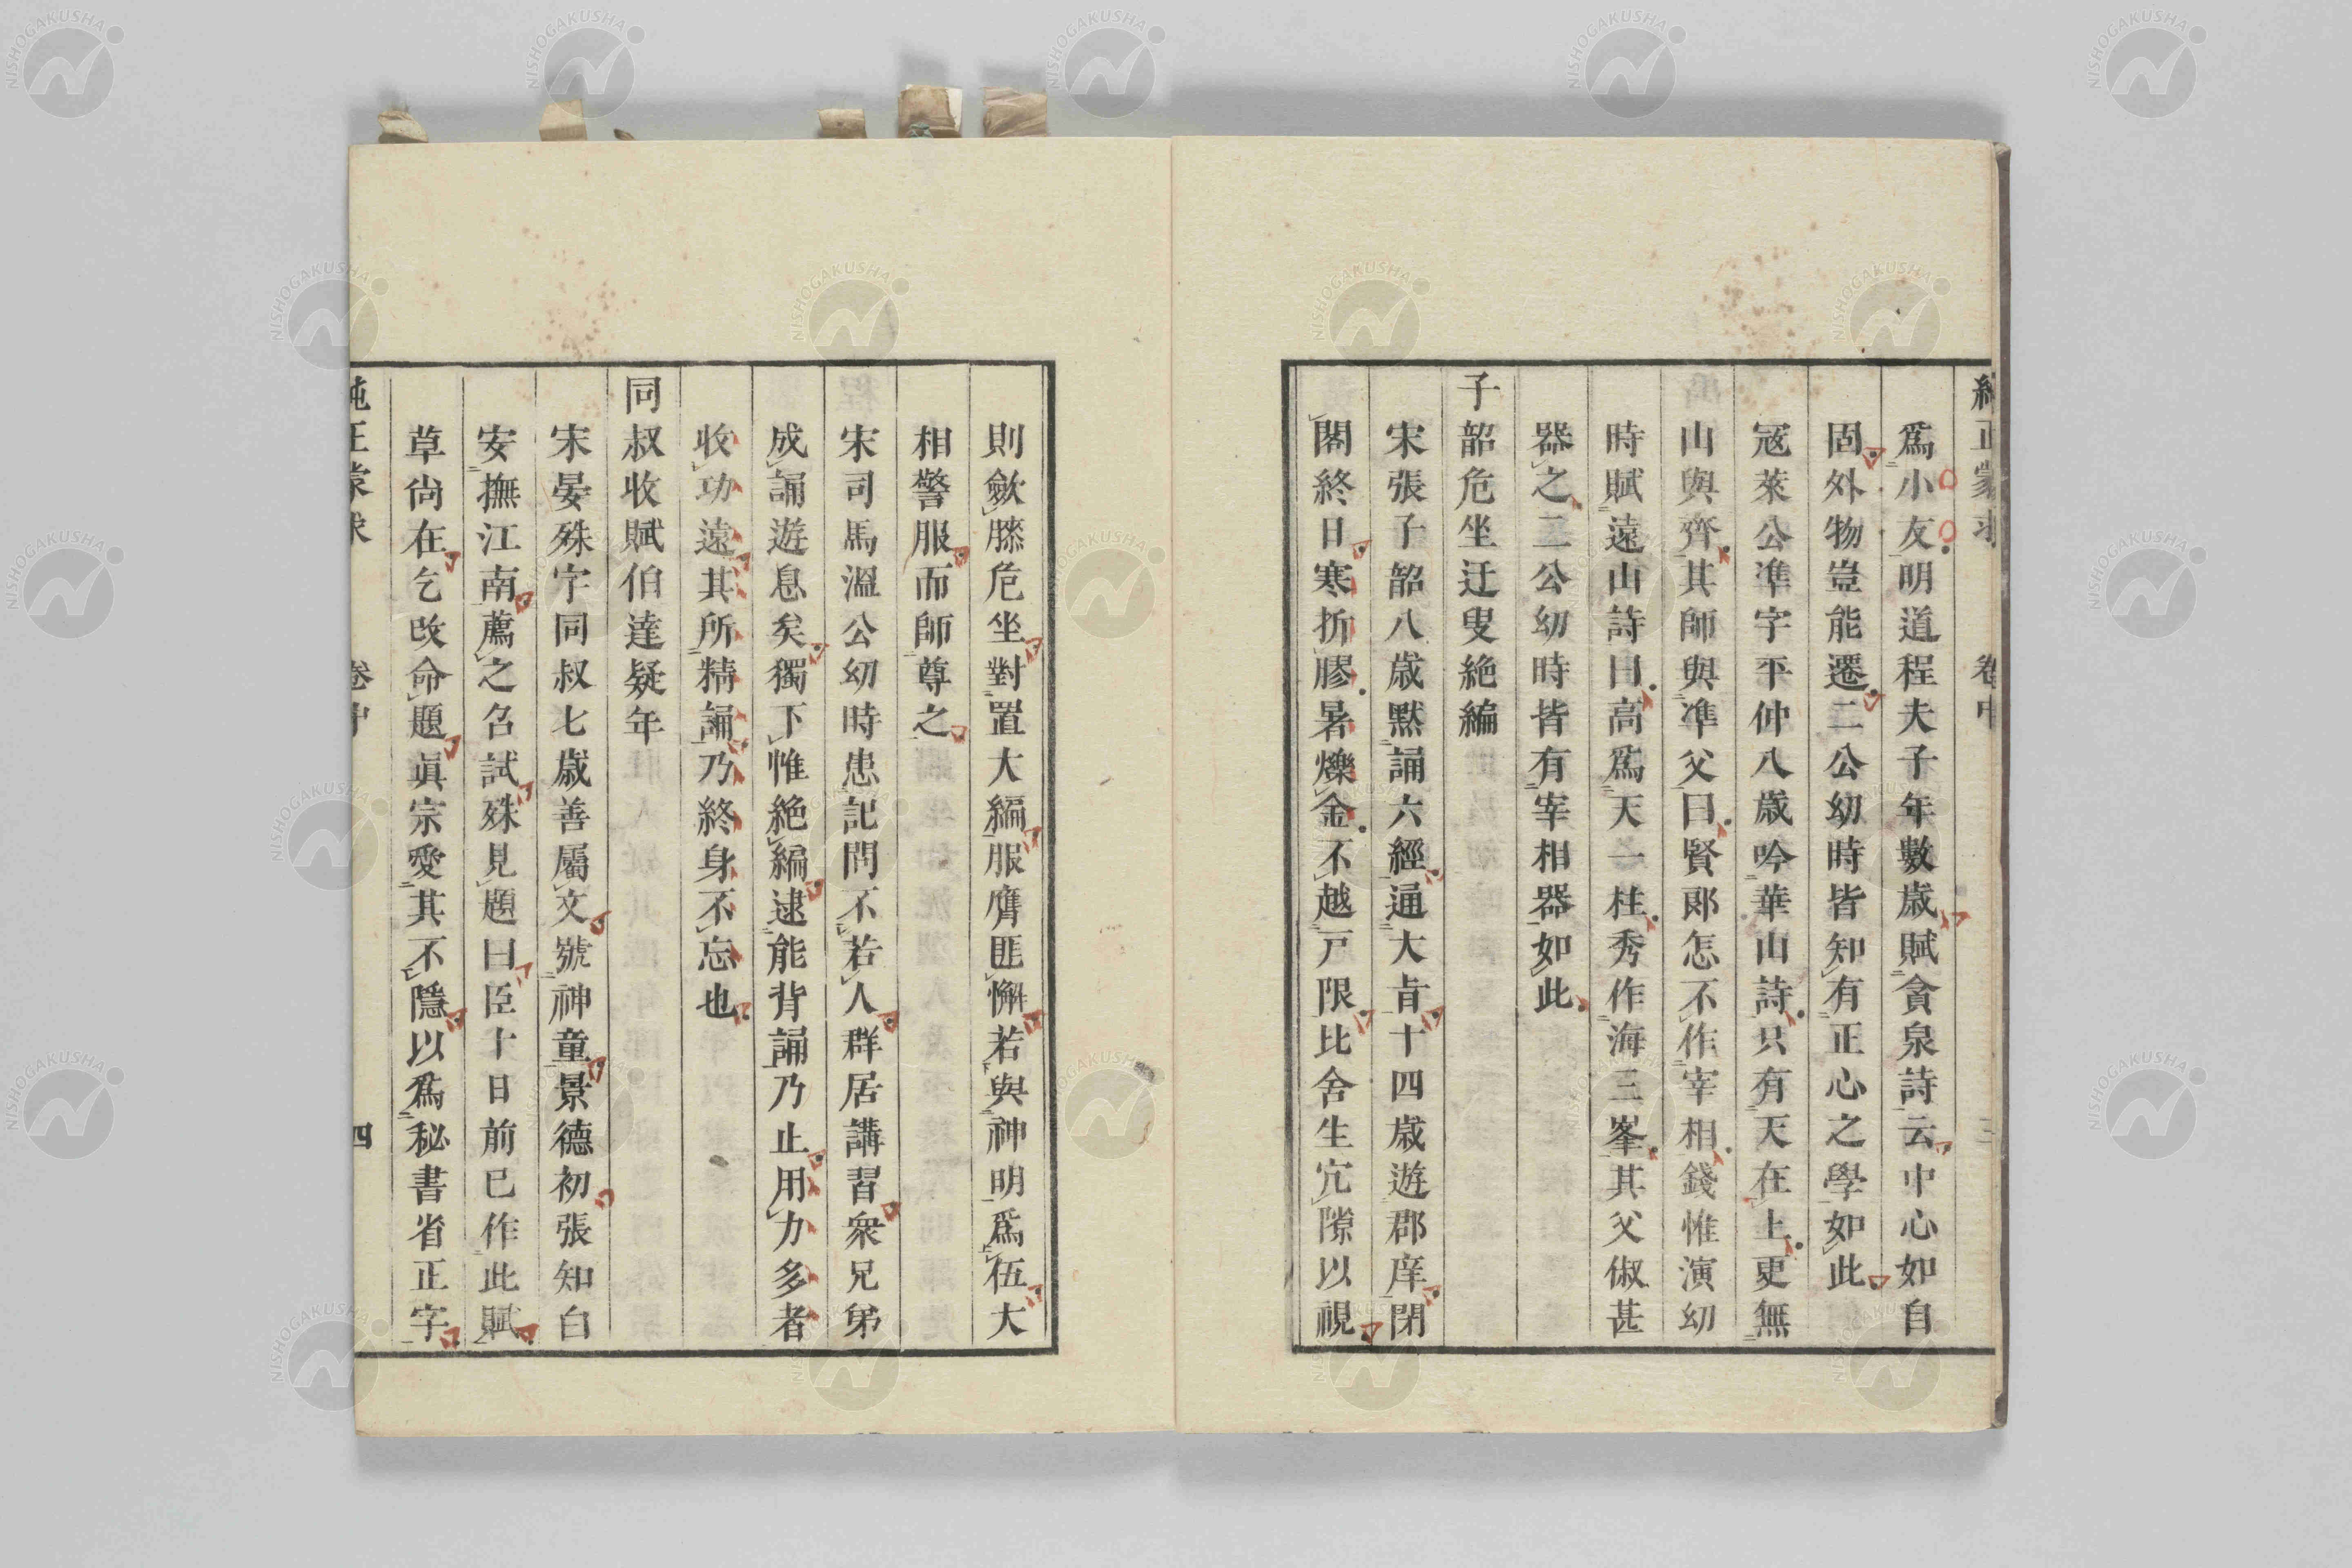 純正蒙求 卷中 三
爲小友明道程夫子年數歲賦貪泉詩云中心如自
固外物豈能遷二公幼時皆知有正心之學如此
寇萊公準字平仲八歲吟華山詩只有天在上更無
山與齊其師與準父曰賢郞怎不作宰相錢惟演幼
時賦遠山詩曰高爲天一柱秀作海三峯其父俶甚
器之二公幼時皆有宰相器如此
子韶危坐迂叟絶編
宋張子韶八歲默誦六經通大㫖十四歲遊郡庠閉
閣終日寒折膠暑爍金不越戸限比舍生宂隙以視
則歛膝危坐對置大編服膺匪懈若與神明爲伍大
相警服而師尊之
宋司馬溫公幼時患記問不若人群居講習衆兄弟
成誦遊息矣獨下帷絶編逮能背誦乃止用力多者
收功遠其所精誦乃終身不忘也
同叔收賦伯達疑年
宋晏殊字同叔七歲善屬文號神童景德初張知白
安撫江南薦之召試殊見題曰臣十日前已作此賦
草尙在乞改命題眞宗愛其不隱以爲秘書省正字
純正蒙求 卷中 四
NISHOGAKUSHA